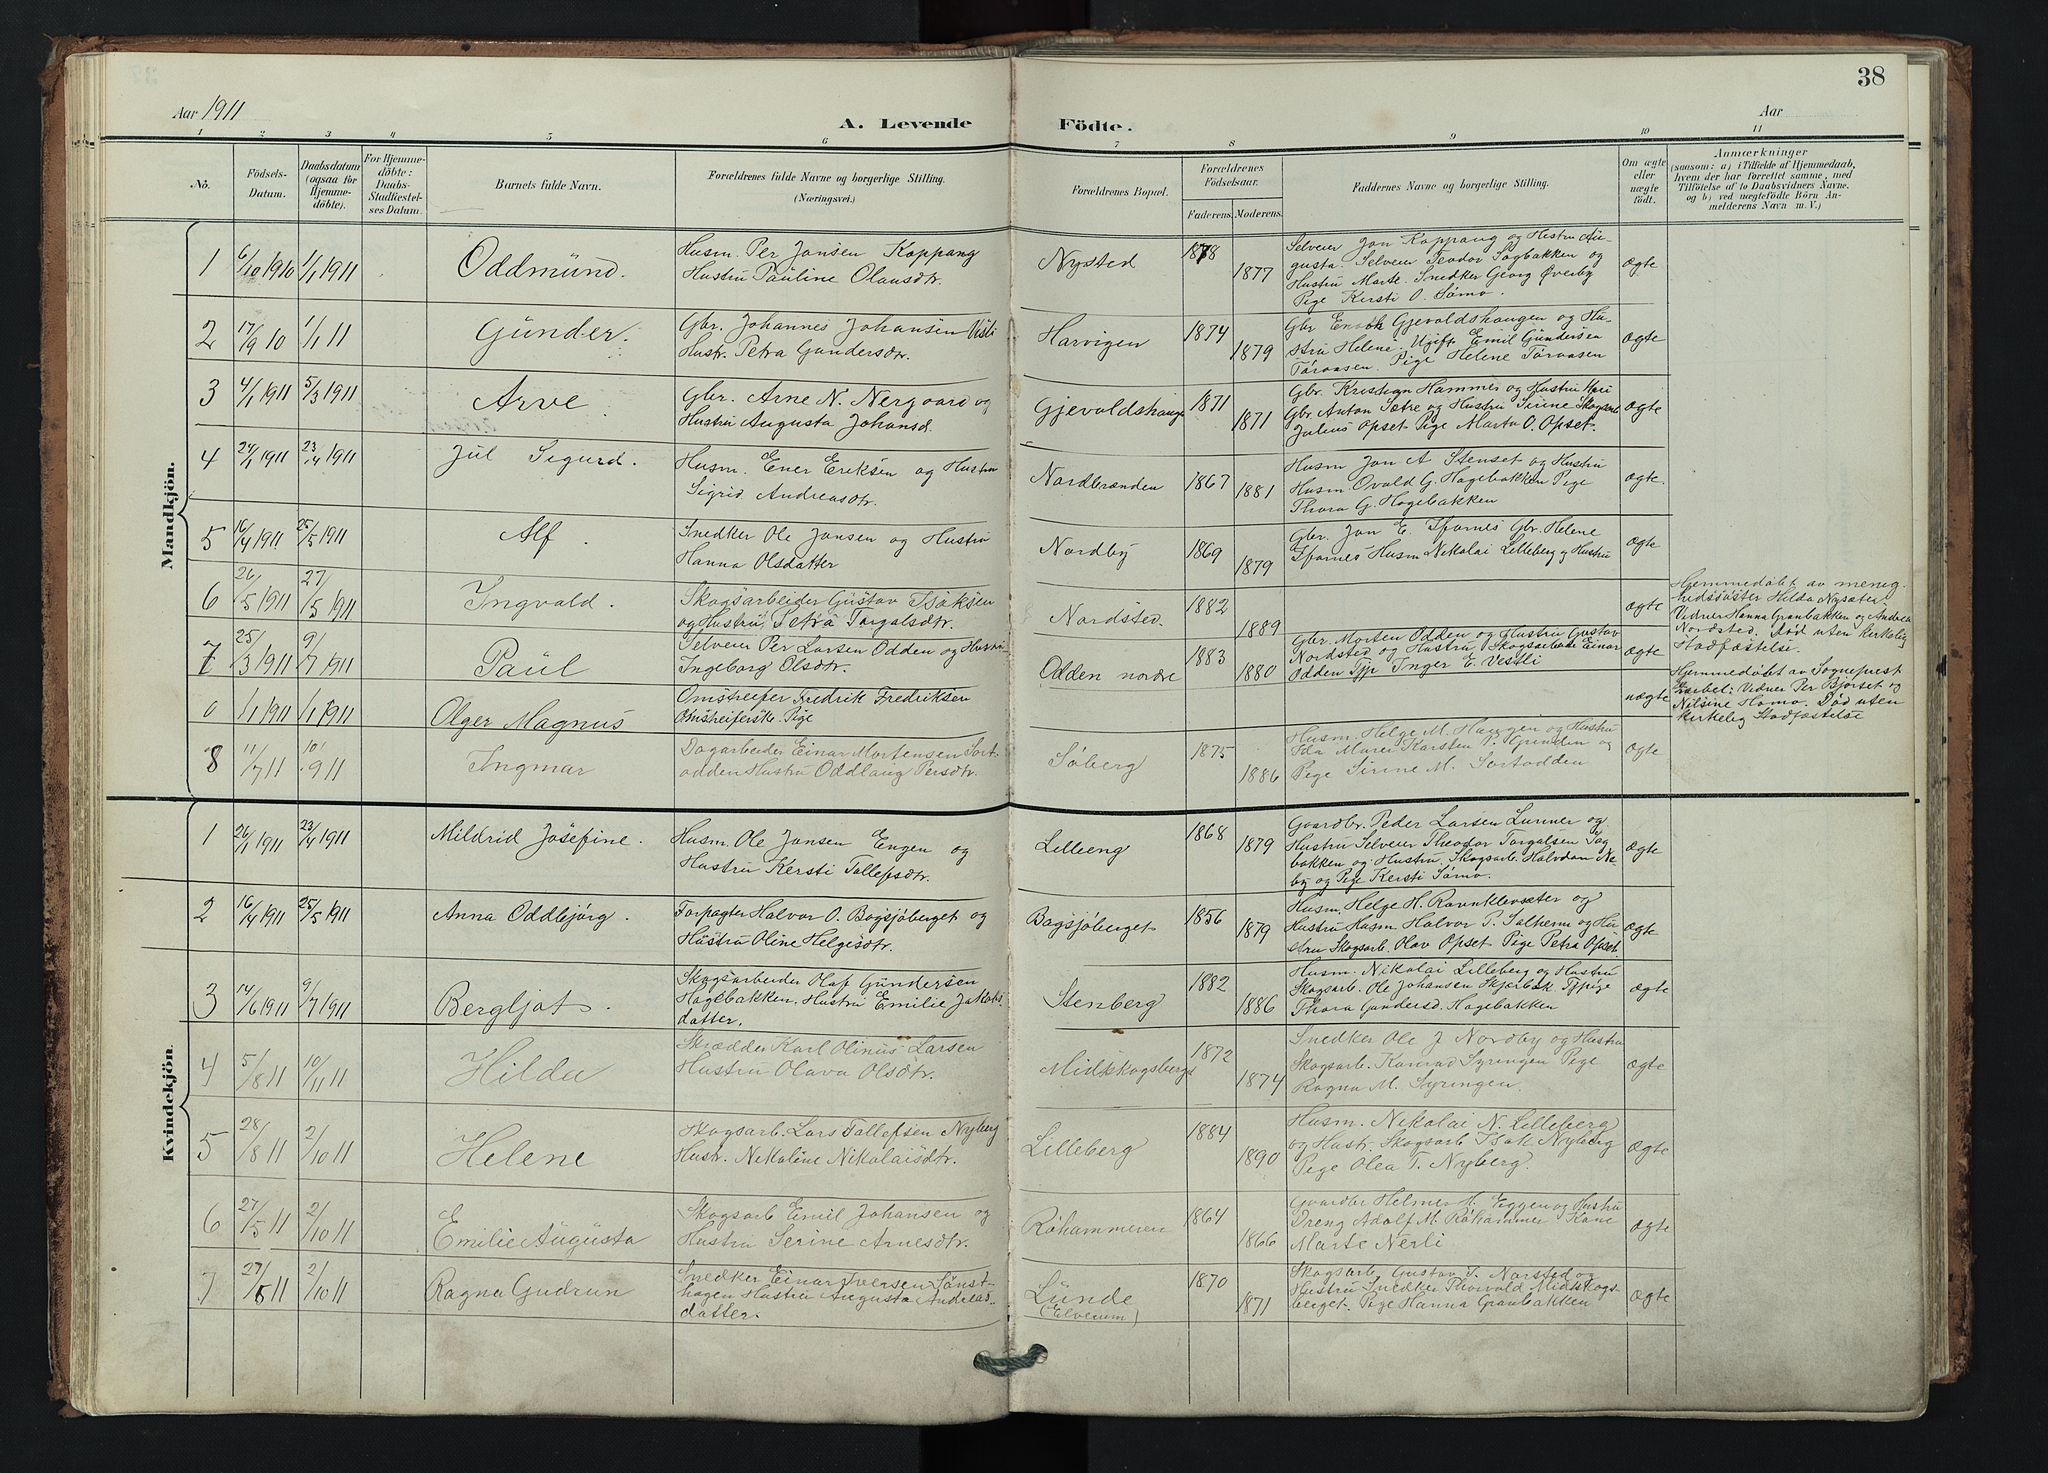 38
Aar 1911
A. Levende Födte.
Aar
1 2 3 4 5 6 7 8 9 10 11
No.
Födsels-
Datum.
Daabsdatum
(ogsaa for
Hjemme-
döbte).
For Hjemme-
döbte:
Daabs-
Stadfæstel-
ses Datum.
Barnets fulde Navn.
Forældrenes fulde Navne og borgerlige Stilling.
(Næringsvei.)
Forældrenes Bopæl.
Forældrenes
Födselsaar.
Faderens. Moderens.
Faddernes Navne og borgerlige Stilling.
Om ægte
eller
uægte
födt.
Anmærkninger
(saasom: a) i Tilfælde af Hjemmedaab,
hvem der har forrettet samme, med
Tilföielse af to Daabsvidners Navne.
og b) ved uægtefödte Börn An-
melderens Navn m. V.)
Mandkjön.
1 6/10 1910 1/1 1911 Oddmund.
Husm. Per Jonsen Koppang
Hustru Pauline Olausdtr.
Nysted 1878 1877
Selveier Jon Koppang og Hustru Au-
gusta. Selveier Teodor Sagbakken og
Hustru Marte. Snedker Georg Øverby
Pige Kersti O. Sømo.
ægte
2 17/9 10 1/1 11 Gunder.
Gbr. Johannes Johansen Vestli
Hustr. Petra Gundersdtr.
Harvigen 1874 1879
Gbr Enok Gjevoldshaugen og Hu-
stru Helene. Ugift Emil Gundersen
Töraasen. Pige Helene Töraasen
ægte
3 4/1 1911 5/3 1911 Arve.
Gbr. Arne N. Nergaard og
Hustru Augusta Johansd.
Gjevoldshauge 1871 1871
Gbr. Kristian Hammer og Hustru Mari
Gbr. Anton Sætre og Hustru Sirine Skogsarb.
Julius Opset Pige Marta O. Opset.
ægte
4 24/1 1911 23/4 1911 Jul Sigurd.
Husm. Ener Eriksen og Hustru
Sigrid Andreasdtr.
Nordbrænden 1867 1881
Husm Jon A Stenset og Hustru
Husm Ovald G. Hagebakken Pige
Thora G. Hagebakken
ægte.
5 16/4 1911 25/5 1911 Alf.
Snedker Ole Jonsen og Hustru
Hanna Olsdatter
Nordby 1869 1879
Gbr. Jon E. Tjernes Gbr. Helene
Tjernes Husm Nikolai Lilleberg og Hustru
ægte
6 26/5 1911 27/5 1911 Ingvald.
Skogsarbeider Gustav Isaksen
og Hustru Petra Torgalsdtr.
Nordsted. 1882 1889
ægte
Hjemmedøbt av menig-
hedssøster Hilda Nysæter.
Vidner Hanna Granbakken og Andrea
Nordsted. Død uten kirkelig
Stadfæstelse.
7 25/3 1911 9/7 1911 Paul
Selveier Per Larsen Odden og Hustru
Ingeborg Olsdtr.
Odden nordre 1883 1880
Gbr. Morten Odden og Hustru Gustav
Nordsted og Hustru Skogsarbeide Einar
Odden Tjp Inger E. Vestli
ægte
0 1/1 1911 1/1 1911 Olger Magnus
Omstreifer Fredrik Fredriksen
Omstreiferske Pige
uægte
Hjemmedøbt av Sogneprest
Vidner Per Bjørset og
Nilsine Homo. Død uten
kirkelig Stadfæstelse
8 11/7 11 10/9 11 Ingmar
Dagarbeider Einar Mortensen Sort-
odden Hustru Oddlaug Persdtr.
Søberg 1875 1886
Husm. Helge M. Haugen og Hustru
Ida Marei Karsten P. Grinden og
Pige Sirine M. Sortodden
ægte
Kvindekjön.
1 26/1 1911 23/4 1911 Mildrid Josefine.
Husm. Ole Jonsen Engen og
Hustru Kersti Tollefsdtr.
Lilleeng 1868 1879
Gvardbr. Peder Larsen Lunner og
Hustru Selveier Theodor Torgalsen Sag
bakken og Hustru. Skogsarb. Halvdan Ne-
by og Pige Kersti Sømo.
ægte
2 16/4 1911 25/5 1911 Anna Oddbjørg.
Forpagter Halvor O. Bagsjøberget og
Hustru Oline Helgisdtr.
Bagsjøberget 1856 1879
Husm. Helge H. Ravnklevsæter og
Hustru Husm Halvor P. Solhem og Hu-
stru Skogsarb. Olav Opset Pige Petra Opset.
ægte
3 14/6 1911 9/7 1911 Bergljot.
Skogsarbeider Olaf Gundersen
Hagebakken. Hustru Emilie Jakobs-
datter.
Stenberg 1882 1886
Husm. Nikolai Lilleberg og Hustru
Skogsarb. Ole Johansen Skjerbæk Tppige
Thora Gundersd. Hagebakken
ægte
4 5/8 11 10/11 11 Hilda
Skrædder Karl Olinus Larsen
Hustru Olava Olsdtr.
Midtskogsberget 1872 1874
Snedker Ole J Nordby og Hustru
Skogsarb. Konrad Syringen Pige
Ragna M. Syringen.
ægte
5 28/8 11 2/10 11 Helene
Skogsarb. Lars Tollefsen Nyberg
Hustr. Nikoline Nikolaisdtr.
Lilleberg 1884 1890
Husm. Nikolai N. Lilleberg
og Hustr. Skogsarb Isak Nyberg
Pige Olea T. Nyberg.
ægte
6 27/5 11 2/10 11 Emilie Augusta
Skogsarb Emil Johansen og
Hustru Serine Arnesdtr.
Røhammeren 1864 1866
Gvardbr Helmer H. Eggen og Hustru
Dreng Adolf M. Røhammer Kone
Marte Nerli
ægte
7 27/5 11 2/10 11 Ragna Gudrun
Snedker Einar Iversen Sønst-
hagen Hustru Augusta Andreas-
datter.
Lunde
(Elverum) 1870 1871
Skogsarb Gustav I. Norsted og
Hustru Snedker Thorvald Midtskogs-
berget. Pige Hanna Granbakken
ægte